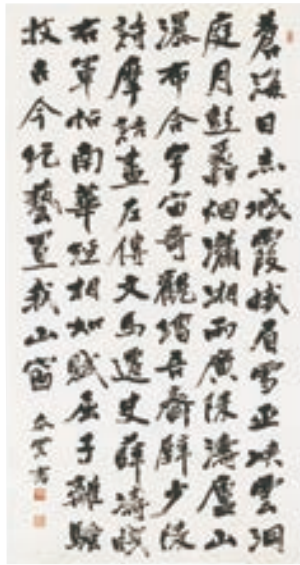 蒼海日赤城霞峨眉雪巫峽雲洞
庭月彭蠡烟瀟湘雨廣陵濤廬山
瀑布合宇宙奇觀繪吾齋壁少陵
詩摩詰畫左傳文馬遷史薛濤牋
右軍帖南華經相如賦屈子離騷
收古今絕藝置我山窗
書